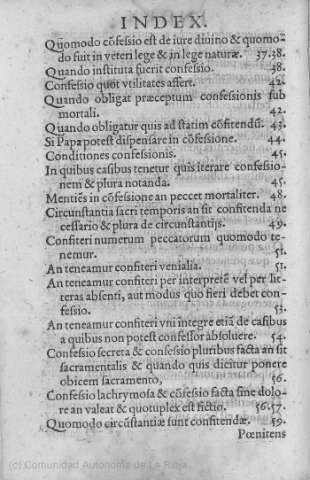 INDEX.
Quomodo cõfessio est de iure diuino & quomo-
do fuit in veteri lege & in lege naturæ. 37.38.
Quando instituta fuerit confessio. 38.
Confessio quot vtilitates affert. 42.
Quando obligat præceptum confessionis sub
mortali. 42.
Quando obligatur quis ad statim cõfitendũ. 43.
Si Papa potest dispensare in cõfessione. 44.
Conditiones confessionis. 45.
In quibus casibus tenetur quis iterare confessio-
nem & plura notanda. 45.
Mentiẽs in cõfessione an peccet mortaliter. 48.
Circunstantia sacri temporis an sit confitenda ne
cessario & plura de circunstantijs. 49.
Confiteri numerum peccatorum quomodo te-
nemur. 51.
An teneamur confiteri venialia. 51.
An teneamur confiteri per interpretẽ vel per lit-
teras absenti, aut modus quo fieri debet con-
fessio. 53.
An teneamur confiteri vni integre etiã de casibus
a quibus non potest confessor absoluere. 54.
Confessio secreta & confessio pluribus facta an sit
sacramentalis & quando quis dicitur ponere
obicem sacramento, 56.
Confessio lachrymosa & cõfessio facta sine dolo-
re an valeat & quotuplex est fictio. 56.57.
Quomodo circũstantiæ sunt confitendæ. 59.
Pœnitens
(c) Comunidad Autónoma de La Rioja